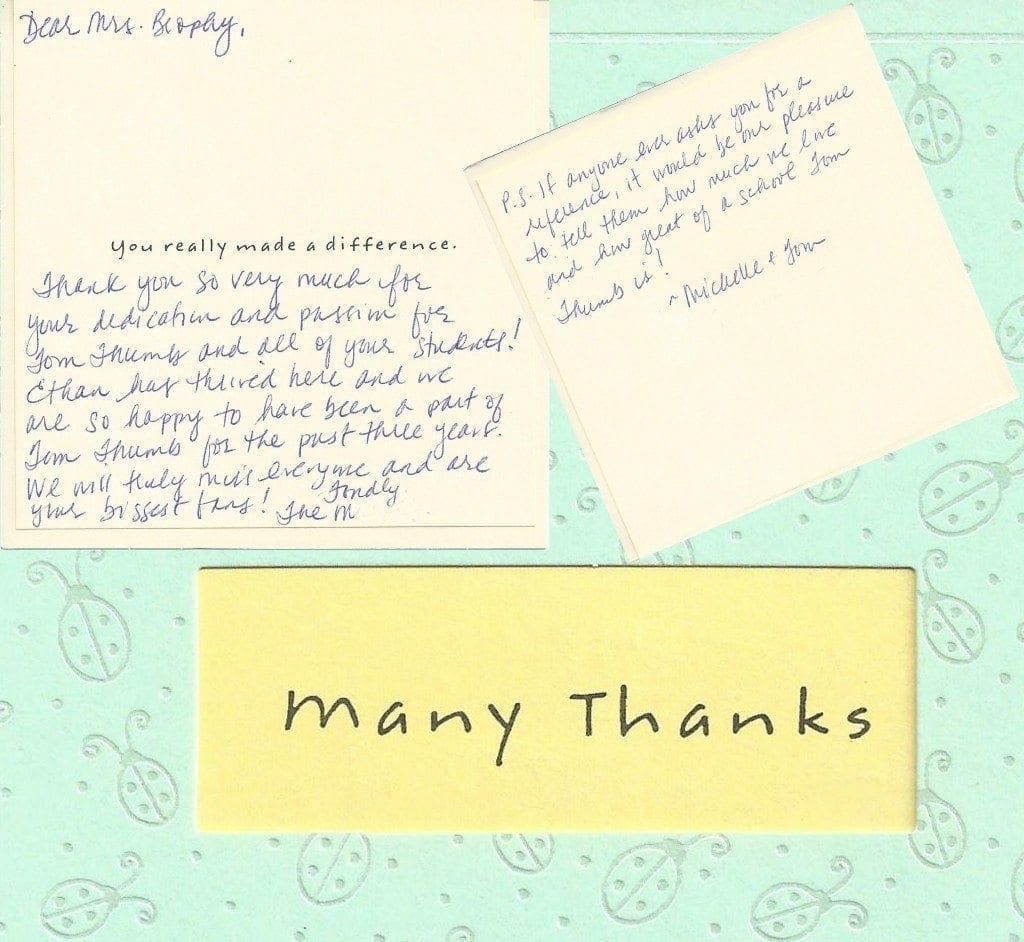 Dear Mrs. Brophy,
You really made a difference.
Thank you so very much for
your dedication and passion for
Tom Thumb and all of your students!
Ethan has thrived here and we
are so happy to have been a part of
Tom Thumb for the past three years.
We will truly miss everyone and are
your biggest fans! Fondly
The M
P.S. If anyone ever asks you for a
reference, it would be our pleasure
to tell them how much we love
and how great of a school Tom
Thumb is!
~ Michelle + Tom
Many Thanks